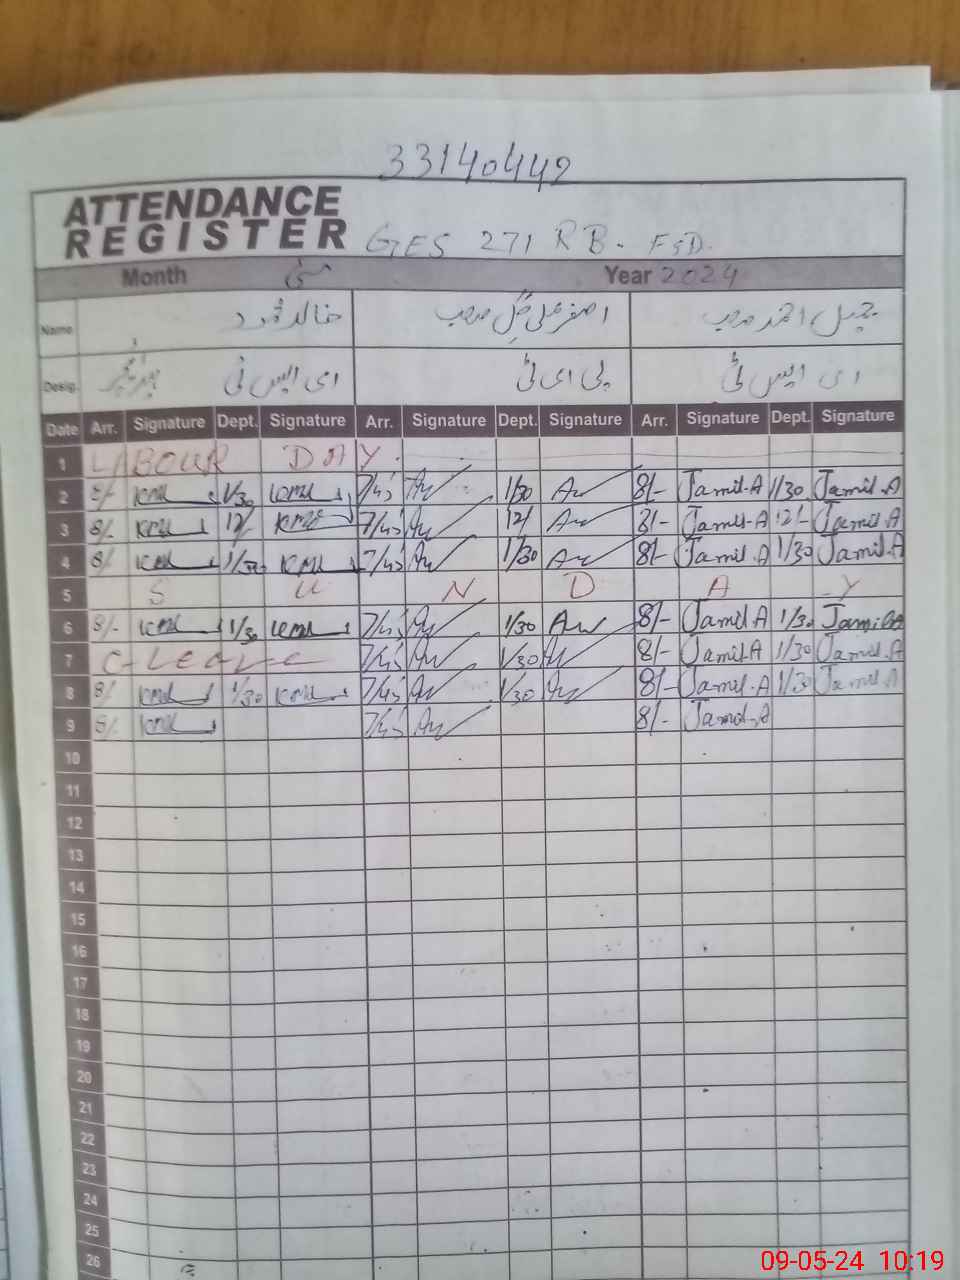 33140442
ATTENDANCE
REGISTER GES 271 RB. FSD.
Month مئی Year 2024
Name خالد محمود اصغر علی گل صاحب جمیل احمد صاحب
Desig. ای ایس ٹی پی ای ٹی ای ایس ٹی
Date Arr. Signature Dept. Signature Arr. Signature Dept. Signature Arr. Signature Dept. Signature
1 LABOUR DAY.
2 8/- 1/30 7/45 1/30 8/- Jamil.A 1/30 Jamil.A
3 8/- 12/ 7/45 12/ 8/- Jamil-A 12/- Jamil.A
4 8/ 1/30 7/45 1/30 8/- Jamil.A 1/30 Jamil.A
5 S U N D A Y
6 8/- 1/30 7/45 1/30 8/- Jamil A 1/30 Jamil.A
7 C-Leave 7/45 1/30 8/- Jamil.A 1/30 Jamil.A
8 8/ 1/30 7/45 1/30 8/- Jamil.A 1/30 Jamil.A
9 8/- 7/45 8/- Jamil.A
10
11
12
13
14
15
16
17
18
19
20
21
22
23
24
25
26
09-05-24 10:19